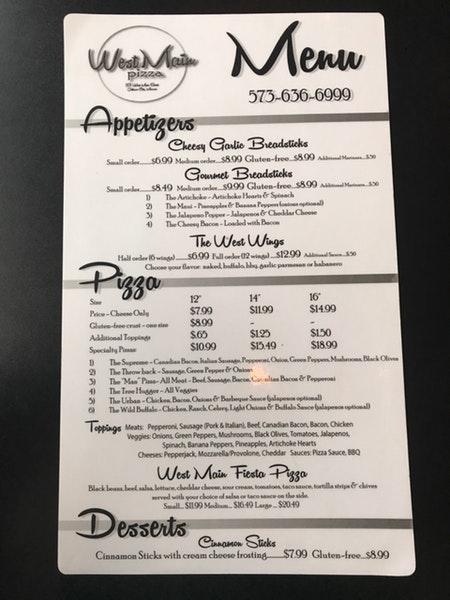 West Main
pizza
Menu
573-636-6999
Appetizers
Cheesy Garlic Breadsticks
Small order......$6.99 Medium order....$8.99 Gluten-free...$8.99 Additional Marinara...$.50
Gourmet Breadsticks
Small order......$8.49 Medium order....$9.99 Gluten-free...$8.99 Additional Marinara...$.50
1) The Artichoke - Artichoke Hearts & Spinach
2) The Maui - Pineapples & Banana Peppers (onions optional)
3) The Jalapeno Popper - Jalapenos & Cheddar Cheese
4) The Cheesy Bacon - Loaded with Bacon
The West Wings
Half order (6 wings) .......$6.99 Full order (12 wings) ...$12.99 Additional Sauce...$.50
Choose your flavor: naked, buffalo, bbq, garlic parmesan or habanero
Pizza
Size 12" 14" 16"
Price - Cheese Only $7.99 $11.99 $14.99
Gluten-free crust - one size $8.99 - -
Additional Toppings $.65 $1.25 $1.50
Specialty Pizzas: $10.99 $15.49 $18.99
1) The Supreme - Canadian Bacon, Italian Sausage, Pepperoni, Onion, Green Peppers, Mushrooms, Black Olives
2) The Throw back - Sausage, Green Pepper & Onions
3) The "Man" Pizza - All Meat - Beef, Sausage, Bacon, Canadian Bacon & Pepperoni
4) The Tree Hugger - All Veggies
5) The Urban - Chicken, Bacon, Onions & Barbeque Sauce (jalapenos optional)
6) The Wild Buffalo - Chicken, Ranch, Celery, Light Onions & Buffalo Sauce (jalapenos optional)
Toppings Meats: Pepperoni, Sausage (Pork & Italian), Beef, Canadian Bacon, Bacon, Chicken
Veggies: Onions, Green Peppers, Mushrooms, Black Olives, Tomatoes, Jalapenos,
Spinach, Banana Peppers, Pineapples, Artichoke Hearts
Cheeses: Pepperjack, Mozzarella/Provolone, Cheddar Sauces: Pizza Sauce, BBQ
West Main Fiesta Pizza
Black beans, beef, salsa, lettuce, cheddar cheese, sour cream, tomatoes, taco sauce, tortilla strips & chives
served with your choice of salsa or taco sauce on the side.
Small... $11.99 Medium... $16.49 Large ... $20.49
Desserts
Cinnamon Sticks
Cinnamon Sticks with cream cheese frosting.........$7.99 Gluten-free...$8.99